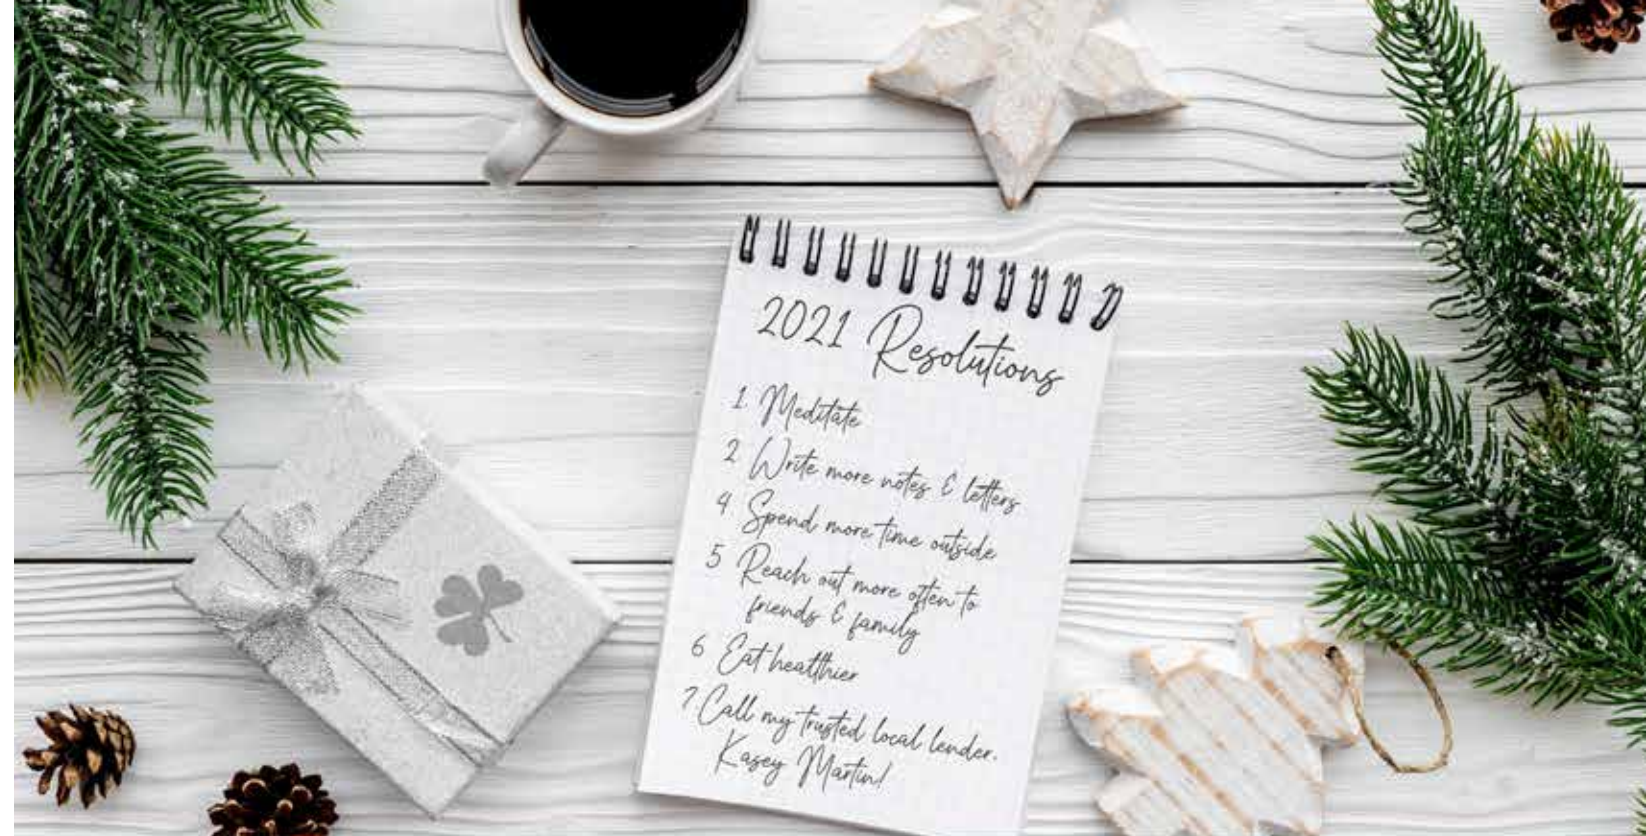 2021 Resolutions
1. Meditate
2 Write more notes & letters
4 Spend more time outside
5 Reach out more often to
friends & family
6 Eat healthier
7. Call my trusted local lender,
Kasey Martin!